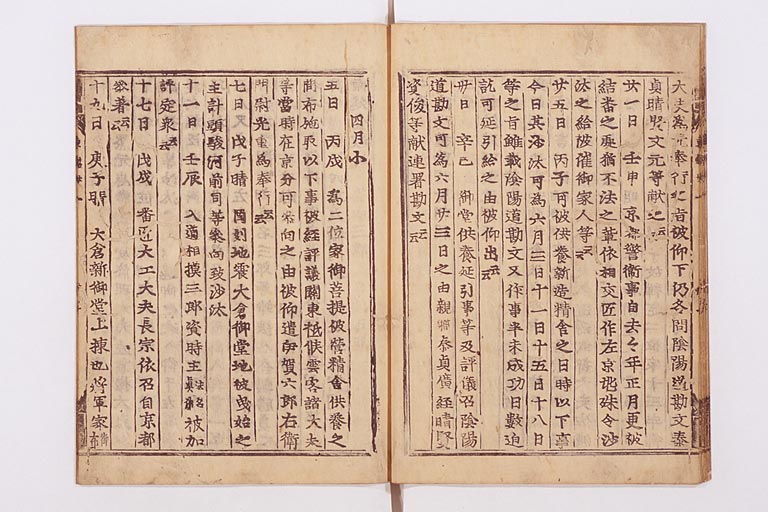 大夫為元奉行之旨被仰下仍各問陰陽道勘文泰
貞晴賢文元等献之云云
廿一日 壬申 京都警衛事自去々年正月更被
結番之處猶不法之輩依相交匠作左京兆殊令沙
汰之給被催御家人等云云
廿五日 丙子 可被供養新造精舎之日時以下事
今日其沙汰可為六月三日十一日十五日十八日
等之旨雖載陰陽道勘文又作事半未成功日數迫
訖可延引給之由被仰出云云
廿日 辛巳 御堂供養延引事等及評儀召陰陽
道勘文可為六月廿三日之由親職泰貞廣經晴賢
資俊等献連署勘文云云
四月小
五日 丙戌 為二位家御菩提被營精舎供養之
間布施取以下事被經評議關東祗候雲客諸大夫
等當時在京分可参向之由被仰遣伊賀六郎右衛
門尉光重為奉行云云
七日 戊子 晴 刻地震大倉御堂地被曳始之
主計頭駿河前司等参向致沙汰
十一日 壬辰 入道相摸三郎資時主法名真昭被加
評定衆云云
十七日 戊戌 番匠大工大夫長宗依召自京都
参著云云
十九日 庚子 晴 大倉新御堂上棟也将軍家